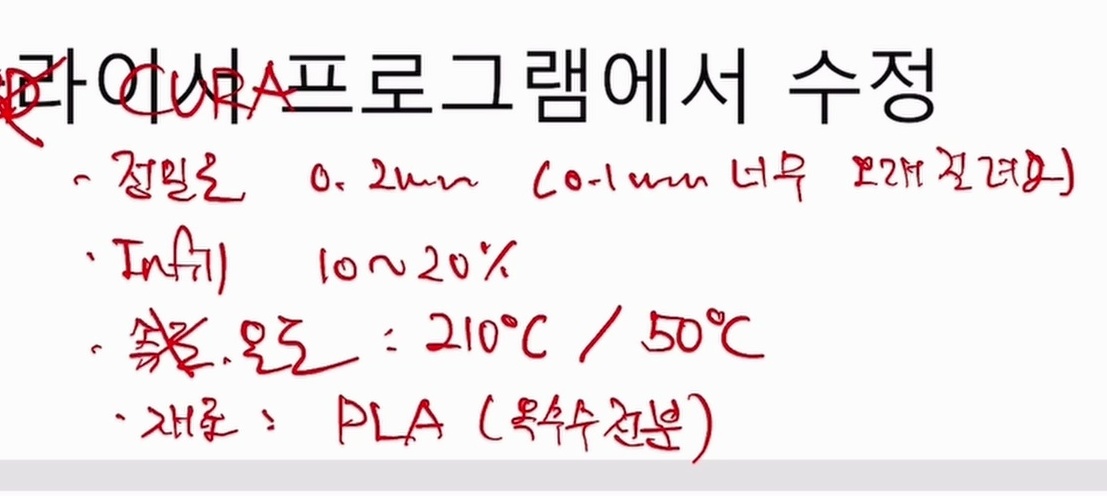 라이서 프로그램에서 수정
CURA
- 정밀도 0.2mm (0.1mm 너무 오래 걸려요)
· Infill 10~20%
· 온도 : 210°C / 50°C
· 재료 : PLA (옥수수전분)